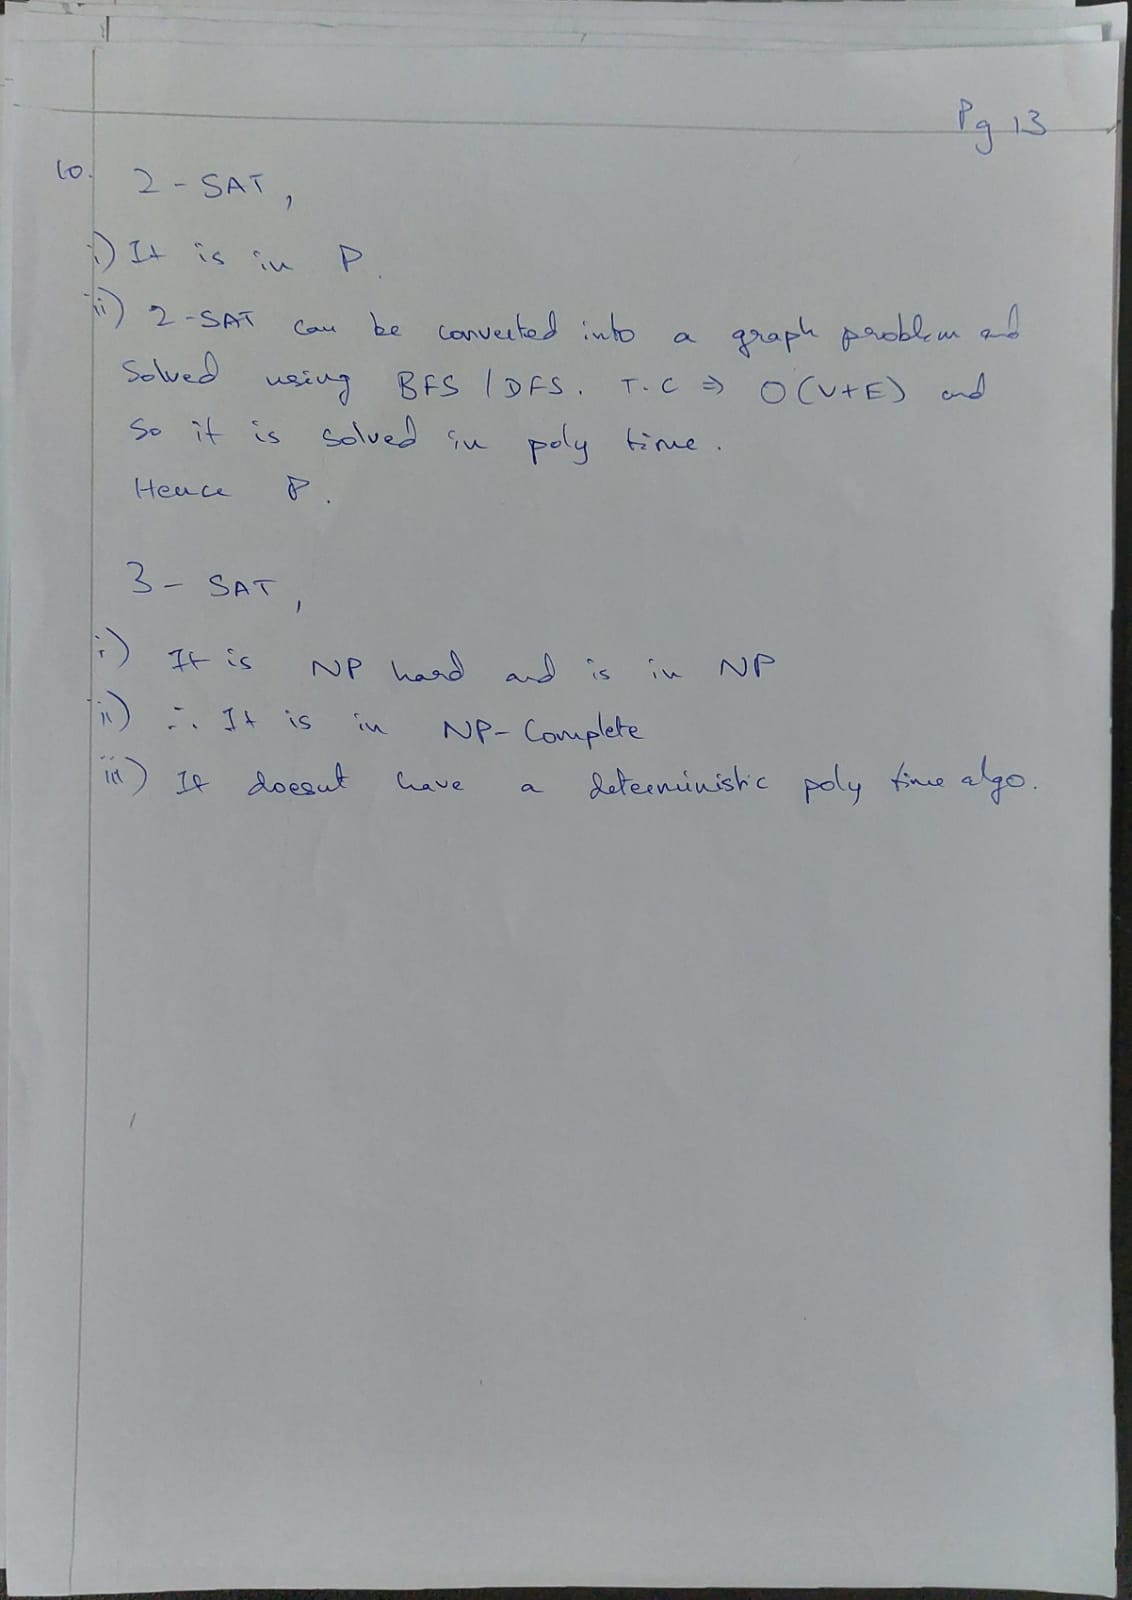 Pg 13
10. 2 - SAT,
i) It is in P.
ii) 2-SAT can be converted into a graph problem and
Solved using BFS / DFS. T.C ⇒ O(V+E) and
So it is solved in poly time.
Hence P.
3 - SAT,
i) It is NP hard and is in NP
ii) ∴ It is in NP-Complete
iii) It doesnt have a deterministic poly time algo.